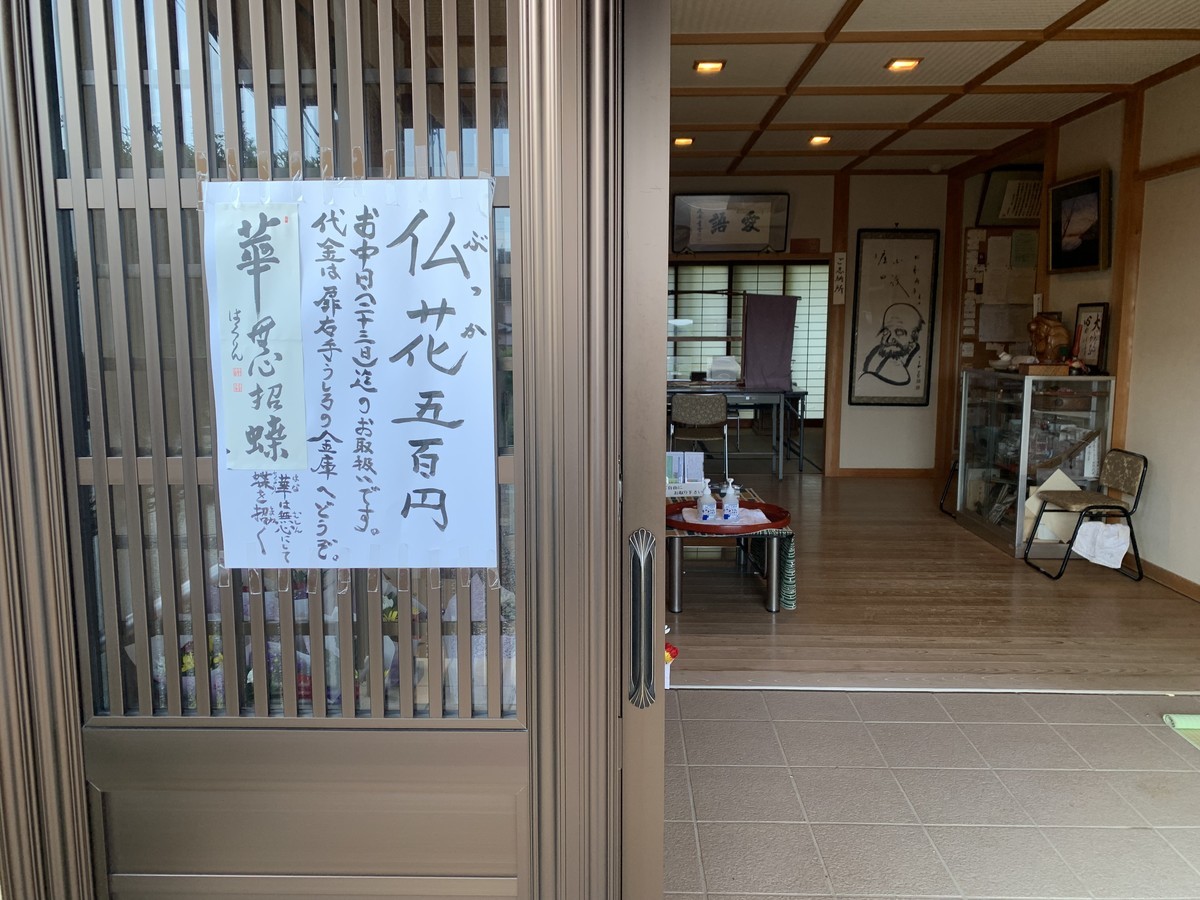 仏花五百円
ぶっか
お中日(二十三日)迄のお取扱いです。
代金は扉右手うしろの金庫へどうぞ。
華無心招蝶
はくうん
華は無心にして
はな
むしん
蝶を招く
愛語
ご志納所